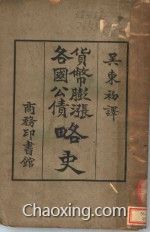 吴東初譯
貨幣膨漲
各國公債
略史
商務印書館
Chaoxing.com